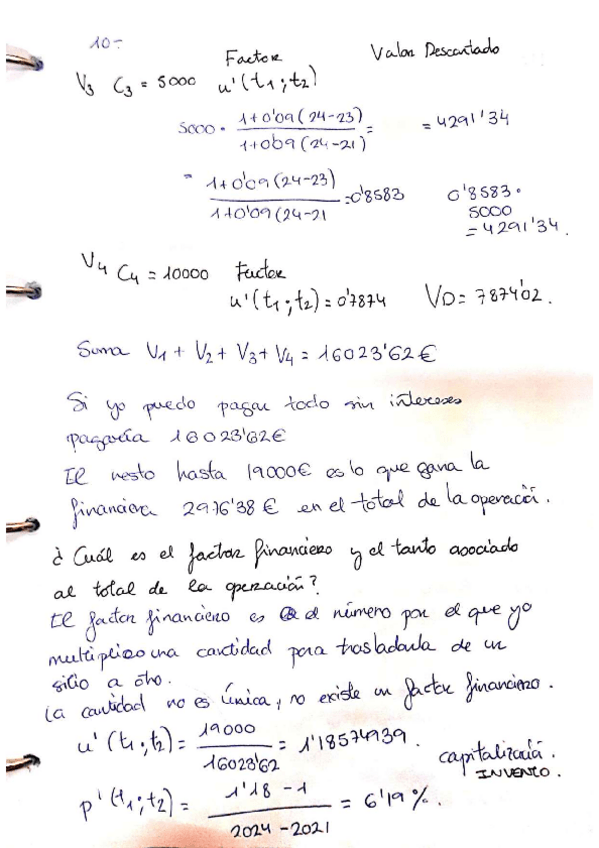 10-
Factor Valor Descontado
V3 C3 = 5000 u'(t1;t2)
5000 · 1+0'09(24-23) / 1+0'09(24-21) = = 4291'34
= 1+0'09(24-23) / 1+0'09(24-21 = 0'8583 0'8583 · 5000 = 4291'34.
V4 C4 = 10000 Factor
u'(t1;t2) = 0'7874 VD = 7874'02.
Suma V1 + V2 + V3 + V4 = 16023'62€
Si yo puedo pagar todo sin intereses
pagaría 16023'62€
El resto hasta 19000€ es lo que gana la
financiera 2976'38 € en el total de la operación.
¿Cuál es el factor financiero y el tanto asociado
al total de la operación?
El factor financiero es el número por el que yo
multiplico una cantidad para trasladarla de un
sitio a otro.
La cantidad no es única, no existe un factor financiero.
u'(t1;t2) = 19000 / 16023'62 = 1'18574939.
capitalizaría.
INVENTO.
p'(t1;t2) = 1'18 - 1 / 2024 - 2021 = 6'19%.